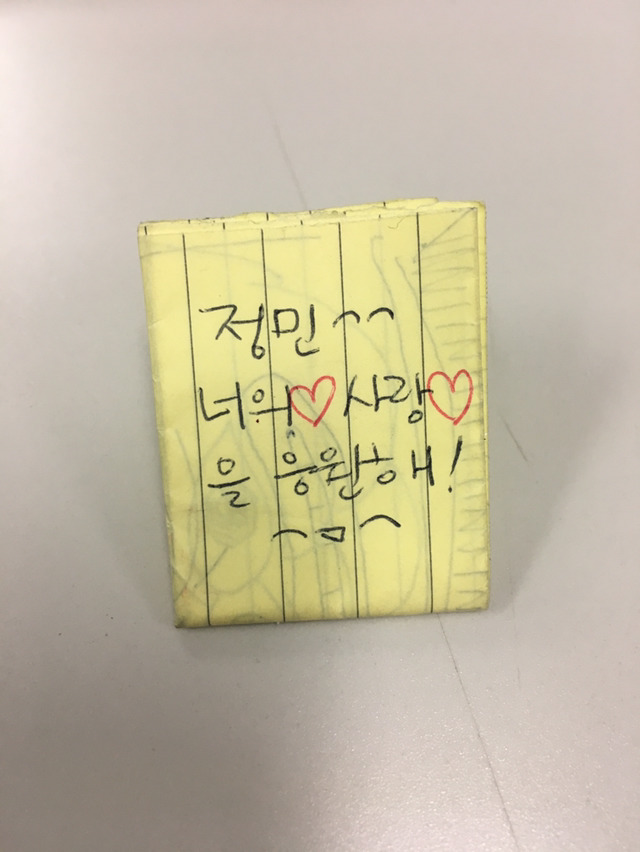 정민 ^^
너의♡사랑♡
을 응원해!
^ㅁ^